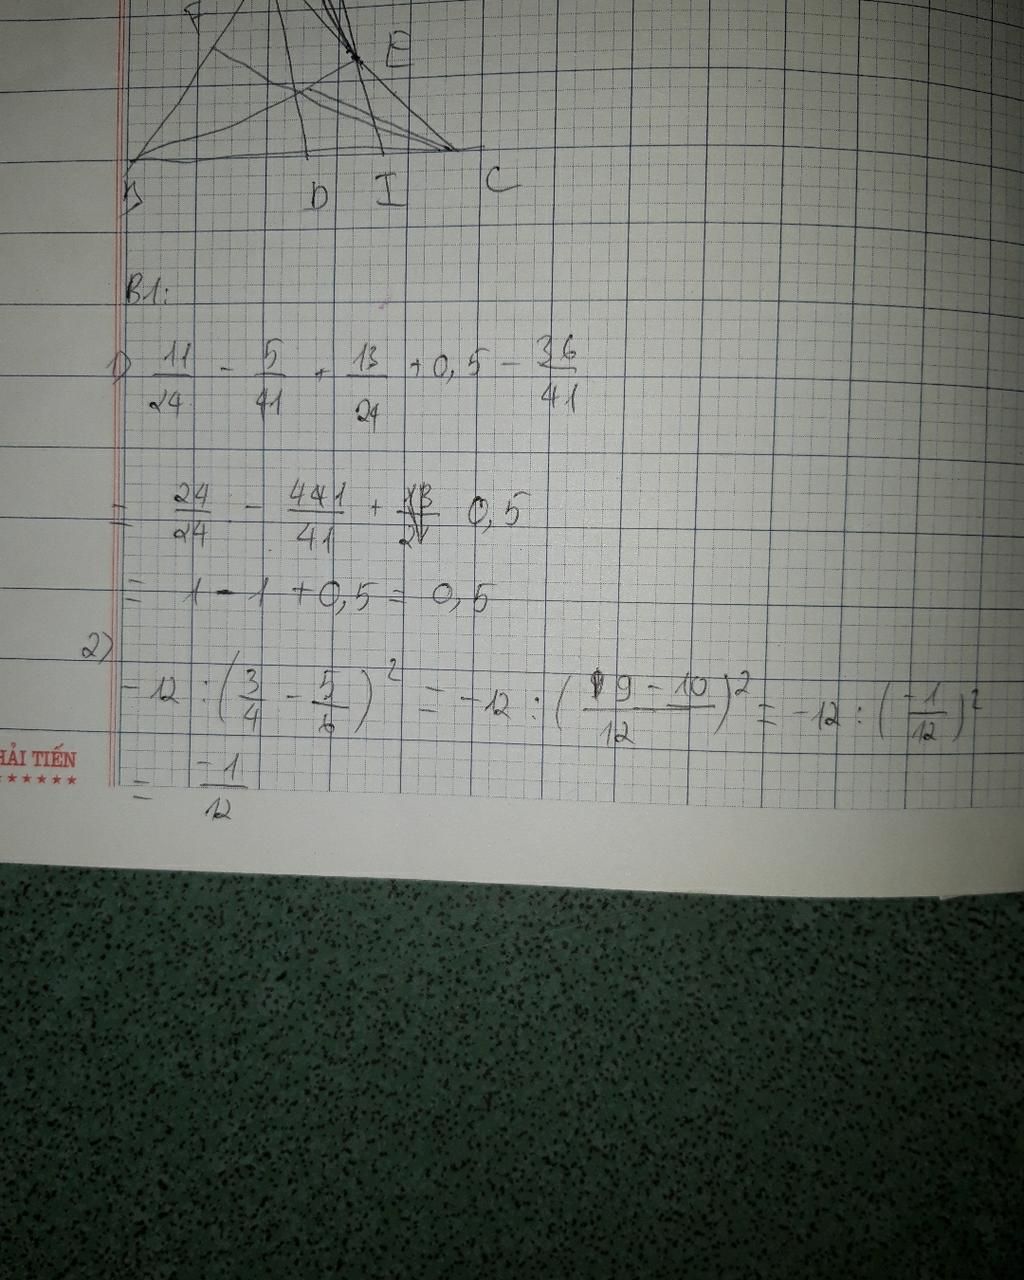 F
E
B D I C
B1:
1) 11/24 - 5/41 + 13/24 + 0,5 - 36/41
= 24/24 - 441/41 + 0,5
= 1 - 1 + 0,5 = 0,5
2)
-12 : (3/4 - 5/6)² = -12 : (9 - 10/12)² = -12 : (-1/12)²
HẢI TIẾN
= -1/12